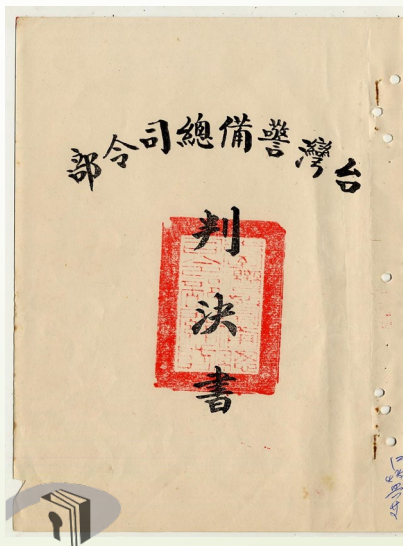 台灣警備總司令部
判決書